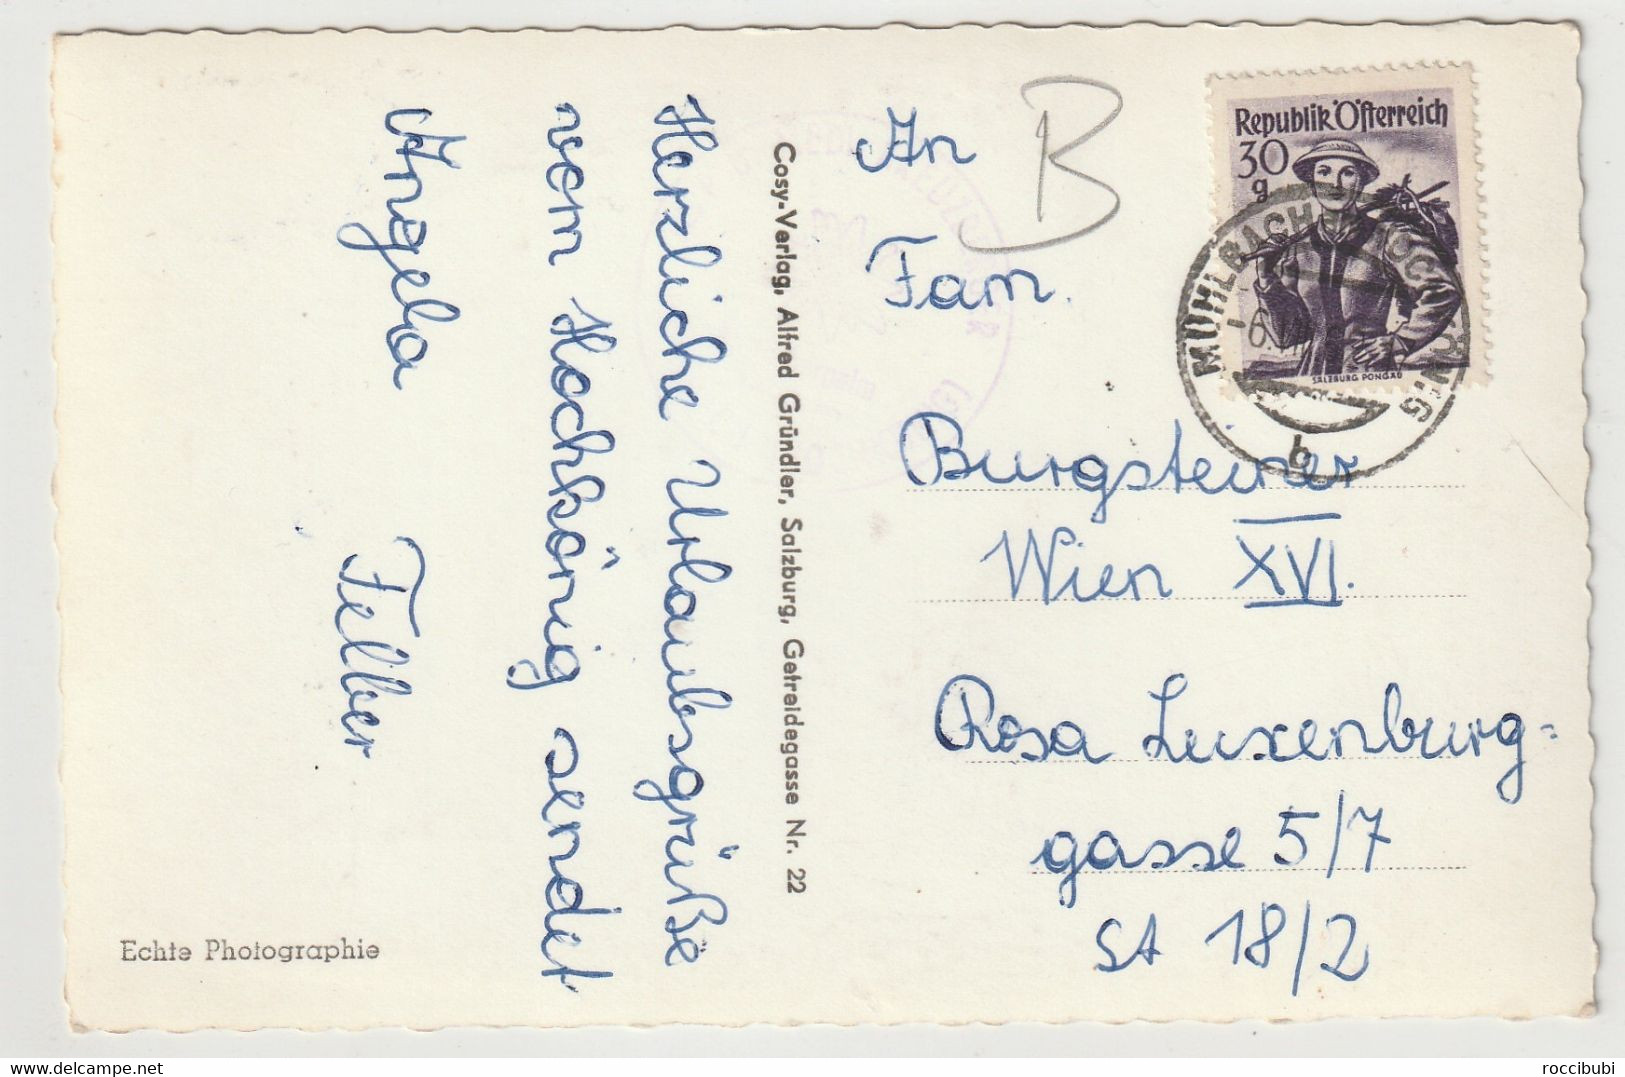 Herzliche Urlaubsgrüße
vom Hochkönig sendet
Angela Felber
Echte Photographie
Cosy-Verlag, Alfred Gründler, Salzburg, Getreidegasse Nr. 22
B
Republik Österreich
30
g
SALZBURG PONGAU
MÜHLBACH HOCHKÖNIG
b
An
Fam.
Burgsteiner
Wien XVI.
Rosa Luxenburg=
gasse 5/7
St 18/2
www.delcampe.net
roccibubi